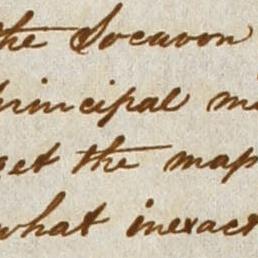 the Socavon
principal m
get the map
what inexact